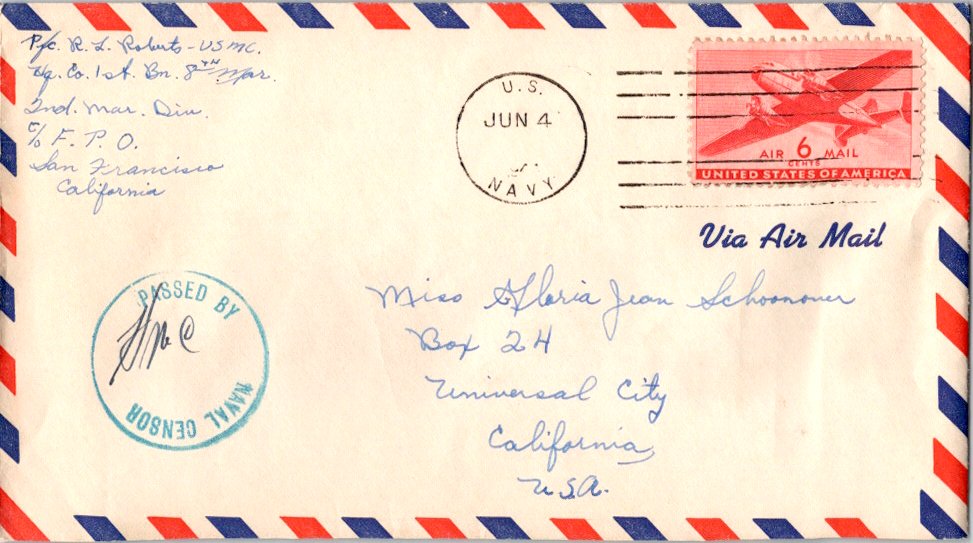 Pfc. R. L. Roberts - USMC.
Hq. Co. 1st. Bn. 8TH Mar.
2nd. Mar. Div.
c/o F. P. O.
San Francisco
California
U.S.
JUN 4
NAVY
AIR 6 MAIL
CENTS
UNITED STATES OF AMERICA
Via Air Mail
PASSED BY
NAVAL CENSOR
Miss Gloria Jean Schoonover
Box 24
Universal City
California,
U.S.A.